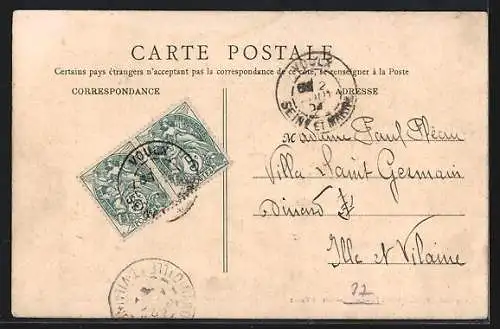 CARTE POSTALE
Certains pays étrangers n'acceptant pas la correspondance de ce côté, se renseigner à la Poste
CORRESPONDANCE
ADRESSE
VOULX
2
SEINE ET MARNE
Madame Paul
Villa Saint Germain
Dinard
Ille et Vilaine
VOULX
22